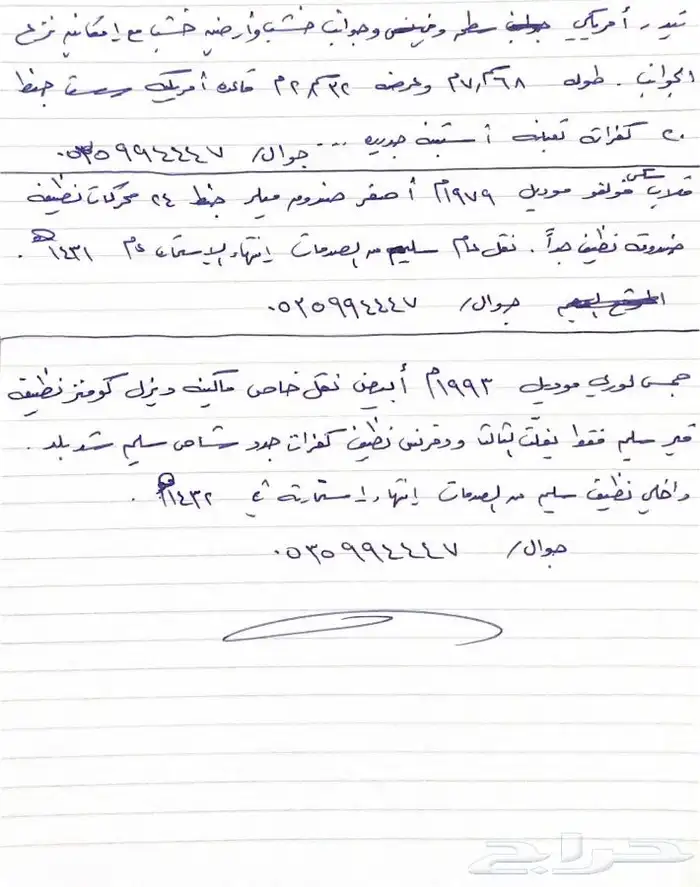 تيدر أمريكي سطحه وفرنس وجوانب خشب وأرضيه خشب مع إمكانيه نزع
الجوانب . طوله ٧,٦٨م وعرضه ٢,٣٢م قاعده أمريكيه جنط
٢٠ كفراته تعبانه استبنه جديده ... جوال/ ٠٥٣٥٩٩٤٤٤٧
قلاب سكس فولفو موديل ١٩٧٩م أصفر صندوم ميلر جنط ٢٤ محركات نظيفه
صندوقه نظيف جداً . نقل عام سليم من الصدمات إنتهاء الإستماره عام ١٤٣١هـ .
جوال/ ٠٥٣٥٩٩٤٤٤٧
جمس لوري موديل ١٩٩٣م أبيض نقل خاص ماكينه ديزل كومنز نظيفه
قير سليم فقط يفلّت الثالث ودفرنس نظيف كفرات جدد شاص سليم شد بلد .
داخلي نظيف سليم من الصدمات إنتهاء إستمارته في ١٤٣٢هـ .
جوال/ ٠٥٣٥٩٩٤٤٤٧
حراج